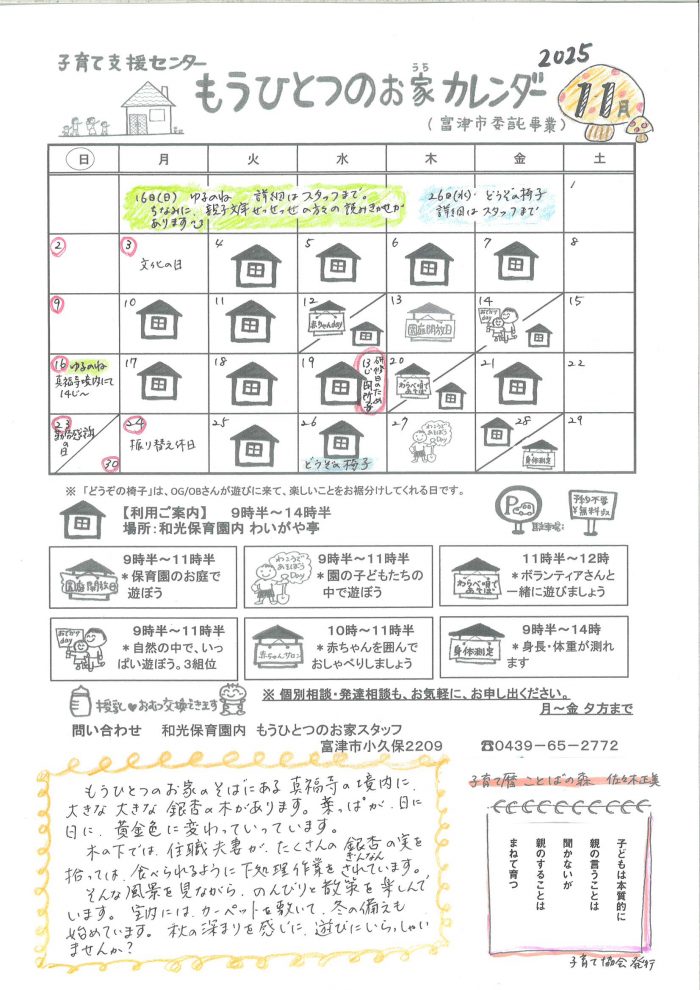 子育て支援センター
もうひとつのお家カレンダー
うち
2025
11月
(富津市委託事業)
日 月 火 水 木 金 土
16日(日) ゆるのね 詳細はスタッフまで。
ちなみに、親子文庫ぜっせっせの方々の読みきかせが
あります
26日(水) どうぞの椅子
詳細はスタッフまで
1
2 3 4 5 6 7 8
文化の日
9 10 11 12 13 14 15
赤ちゃんday
園庭開放日
おでかけday
16 ゆるのね
真福寺境内にて
14じ〜
17 18 19 20 21 22
研修日のため
13じ閉所
わらべ唄であそぼ
23
勤労感謝の日
30
24 25 26 27 28 29
振り替え休日
どうぞの椅子
わこうであそぼうDay
身体測定
※ 「どうぞの椅子」は、OG/OBさんが遊びに来て、楽しいことをお裾分けしてくれる日です。
【利用ご案内】 9時半〜14時半
場所:和光保育園内 わいがや亭
P
駐車場有
予約不要
無料です
9時半〜11時半
*保育園のお庭で
遊ぼう
園庭開放日
9時半〜11時半
*園の子どもたちの
中で遊ぼう
わこうであそぼうDay
11時半〜12時
*ボランティアさんと
一緒に遊びましょう
わらべ唄であそぼ
9時半〜11時半
*自然の中で、いっ
ぱい遊ぼう。3組位
おでかけday
10時〜11時半
*赤ちゃんを囲んで
おしゃべりしましょう
赤ちゃんサロン
9時半〜14時
*身長・体重が測れ
ます
身体測定
授乳♥おむつ交換できます
※ 個別相談・発達相談も、お気軽に、お申し出ください。
月〜金 夕方まで
問い合わせ 和光保育園内 もうひとつのお家スタッフ
富津市小久保2209 ☎0439-65-2772
もうひとつのお家のそばにある真福寺の境内に、
大きな大きな銀杏の木があります。葉っぱが、日に
日に、黄金色に変わっていっています。
木の下では、住職夫妻が、たくさんの銀杏の実を
ぎんなん
拾っては、食べられるように下処理作業をされています。
そんな風景を見ながら、のんびりと散策を楽しんで
います。室内には、カーペットを敷いて、冬の備えも
始めています。秋の深まりを感じに、遊びにいらっしゃい
ませんか?
子育て暦 ことばの森 佐々木正美
子どもは本質的に
親の言うことは
聞かないが
親のすることは
まねて育つ
子育て協会発行